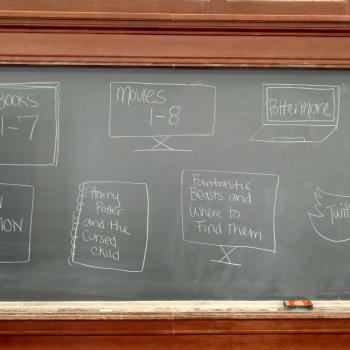 BOOKS
1-7
Movies
1-8
Pottermore
Harry
Potter
and the
Cursed
child
Fantastic
Beasts and
Where to
Find Them